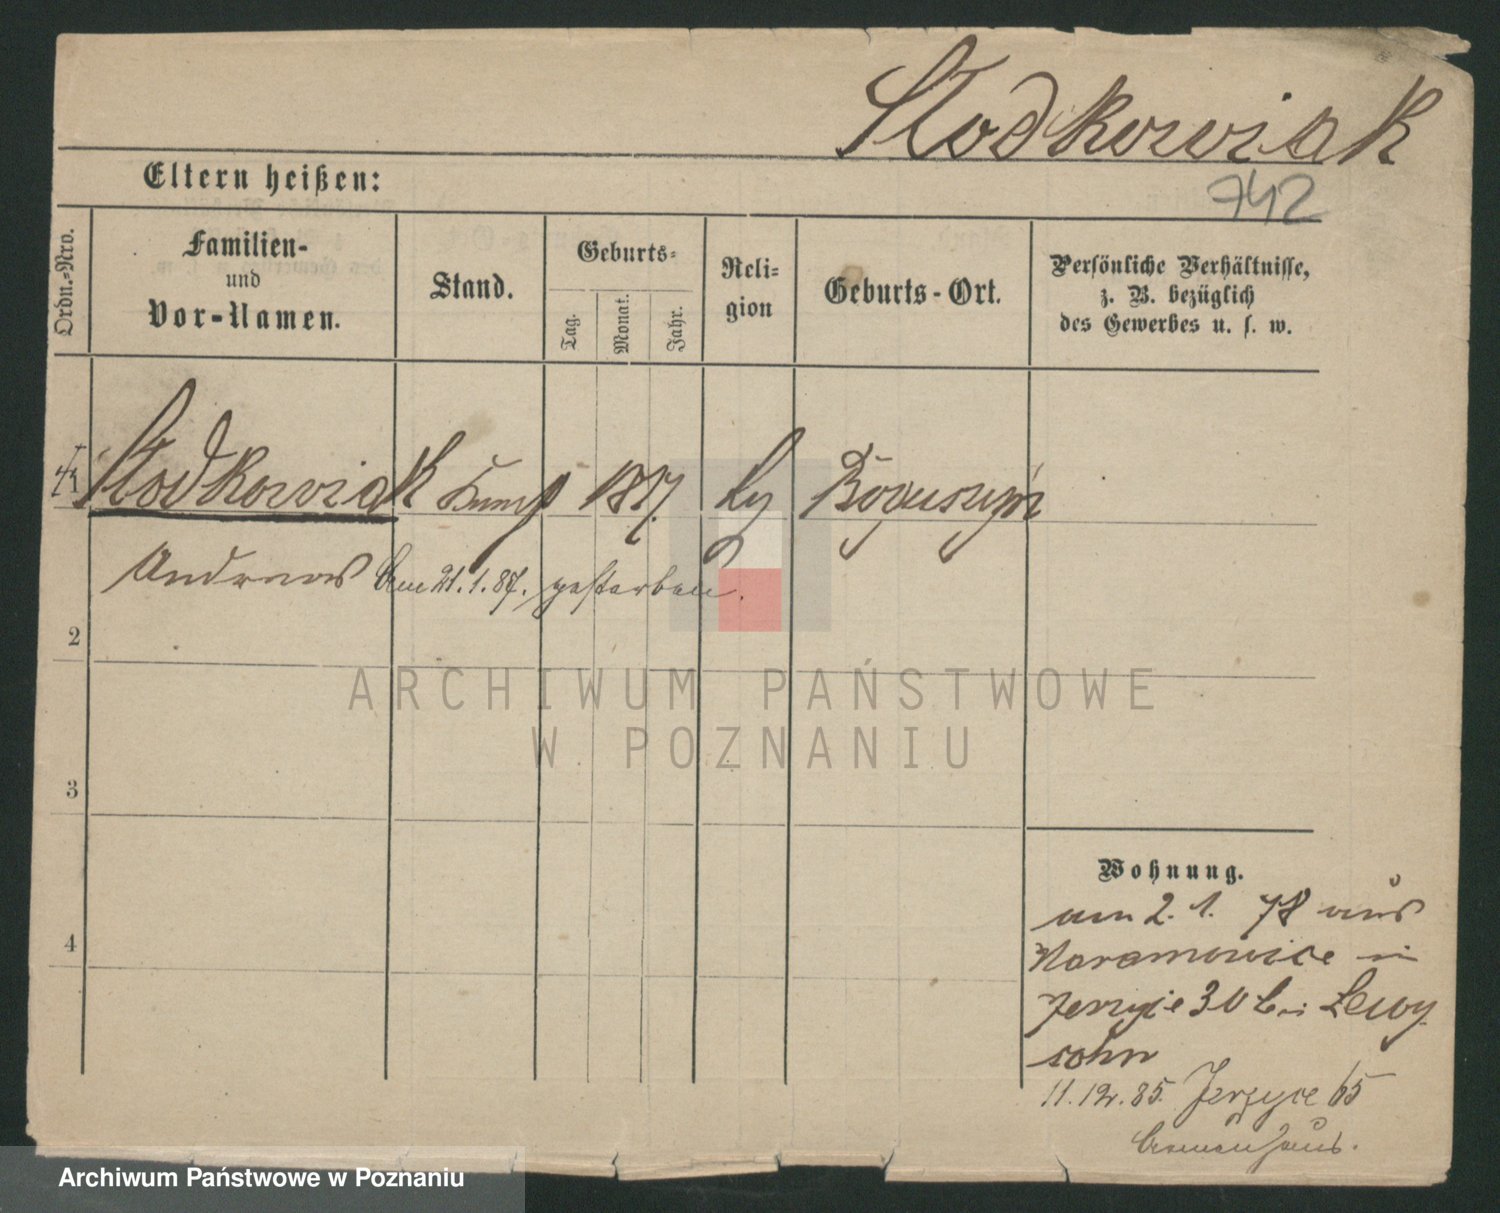 Slodkowiak
742
Eltern heißen:
Ordn.-Nro.
Familien-
und
Vor-Namen.
Stand.
Geburts-
Tag.
Monat.
Jahr.
Reli-
gion
Geburts-Ort.
Persönliche Verhältnisse,
z. B. bezüglich
des Gewerbes u. s. w.
Slodkowiak 1817.
Andreas am 21.1.87. gestorben.
2
3
4
ARCHIWUM PAŃSTWOWE
W POZNANIU
Wohnung.
am 2. 1. 78 aus
Naramowice in
30 bei Lewy
sohn
11.12.85. Jerzyce 65
Armenhaus.
Archiwum Państwowe w Poznaniu